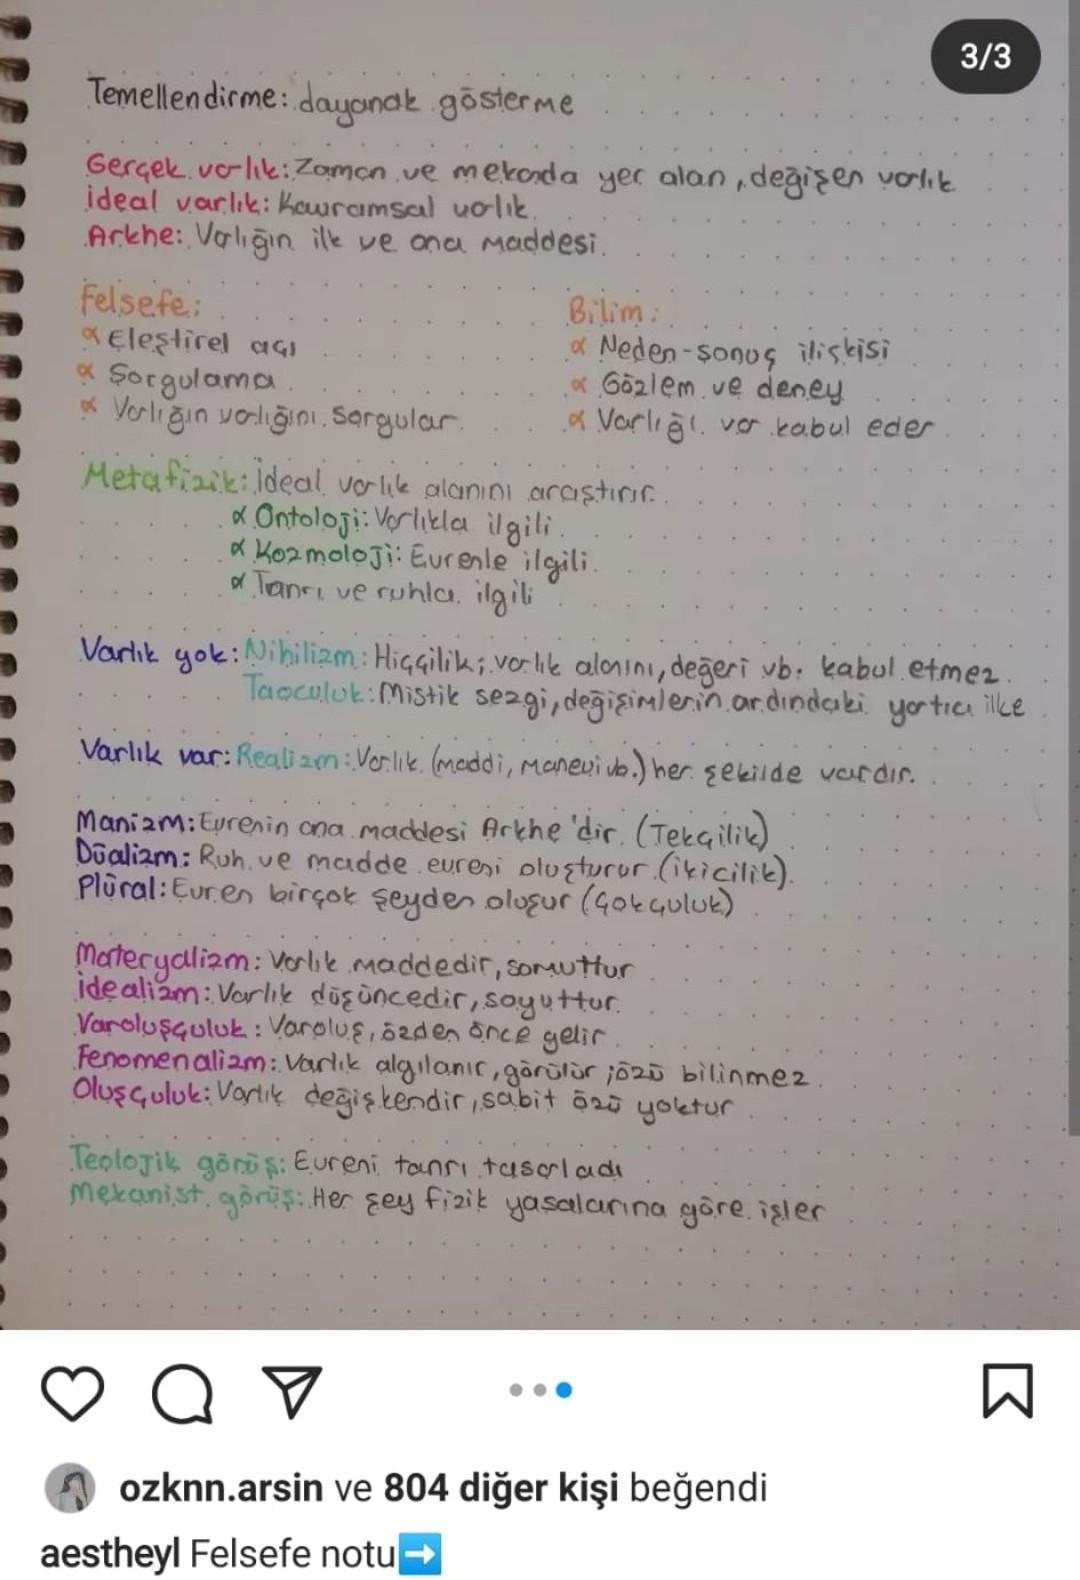 3/3
Temellendirme: dayanak gösterme
Gerçek varlık: Zaman ve mekanda yer alan, değişen varlık
İdeal varlık: Kavramsal varlık.
Arkhe: Varlığın ilk ve ana maddesi.
Felsefe:
∝ Eleştirel açı
∝ Sorgulama
∝ Varlığın varlığını sorgular.
Bilim:
∝ Neden-sonuç ilişkisi
∝ Gözlem ve deney
∝ Varlığı var kabul eder.
Metafizik: İdeal varlık alanını araştırır.
∝ Ontoloji: Varlıkla ilgili.
∝ Kozmoloji: Evrenle ilgili.
∝ Tanrı ve ruhla ilgili
Varlık yok: Nihilizm: Hiççilik; varlık alanını, değeri vb. kabul etmez.
Taoculuk: Mistik sezgi, değişimlerin ardındaki yartıcı ilke
Varlık var: Realizm: Varlık (maddi, manevi vb.) her şekilde vardır.
Manizm: Evrenin ana maddesi Arkhe'dir. (Tekçilik)
Düalizm: Ruh ve madde evreni oluşturur. (ikicilik).
Plüral: Evren birçok şeyden oluşur (Çokçuluk)
Materyalizm: Varlık maddedir, somuttur
İdealizm: Varlık düşüncedir, soyuttur.
Varoluşçuluk: Varoluş, özden önce gelir.
Fenomenalizm: Varlık algılanır, görülür; özü bilinmez.
Oluşçuluk: Varlık değişkendir, sabit özü yoktur.
Teolojik görüş: Evreni tanrı tasarladı
Mekanist görüş: Her şey fizik yasalarına göre işler
ozknn.arsin ve 804 diğer kişi beğendi
aestheyl Felsefe notu➡️